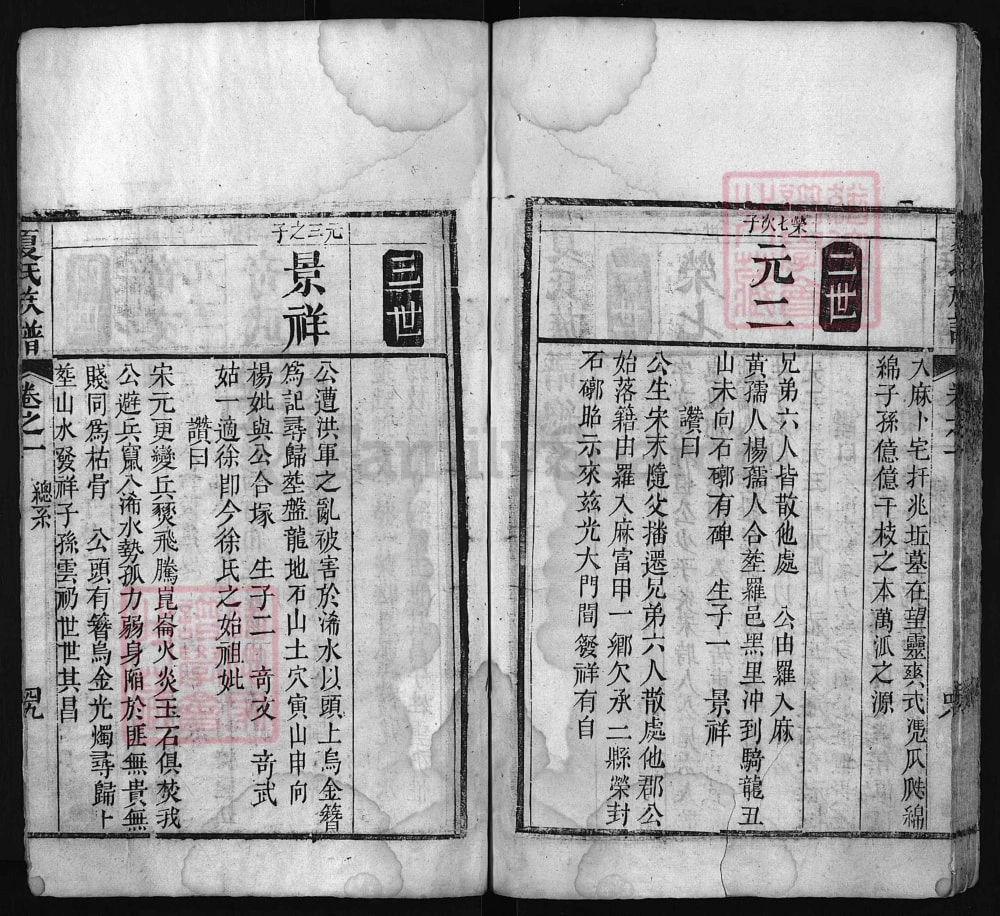 大麻卜宅扦兆坵墓在望靈爽式憑瓜瓞綿
綿子孫億億千枝之本萬派之源
二世
榮七次子
元二
兄弟六人皆散他處 公由羅入麻
黃孺人楊孺人合塟羅邑黑里沖到騎龍丑
山未向石槨有碑 生子一 景祥
讚曰
公生宋末隨父播遷兄弟六人散處他郡公
始落籍由羅入麻富甲一鄉欠承二縣榮封
石槨昭示來兹光大門閭發祥有自
夏氏族譜
卷之一
總系
四九
三世
元三之子
景祥
公遭洪軍之亂被害於浠水以頭上烏金簪
爲記尋歸塟盤龍地石山土穴寅山申向
楊妣與公合塚 生子二 竒文 竒武
姑一適徐即今徐氏之始祖妣
讚曰
宋元更變兵燹飛騰崑崙火炎玉石俱焚我
公避兵竄入浠水勢孤力弱身陷於匪無貴無
賤同爲枯骨 公頭有簪烏金光燭尋歸卜
塟山水發祥子孫雲礽世世其昌